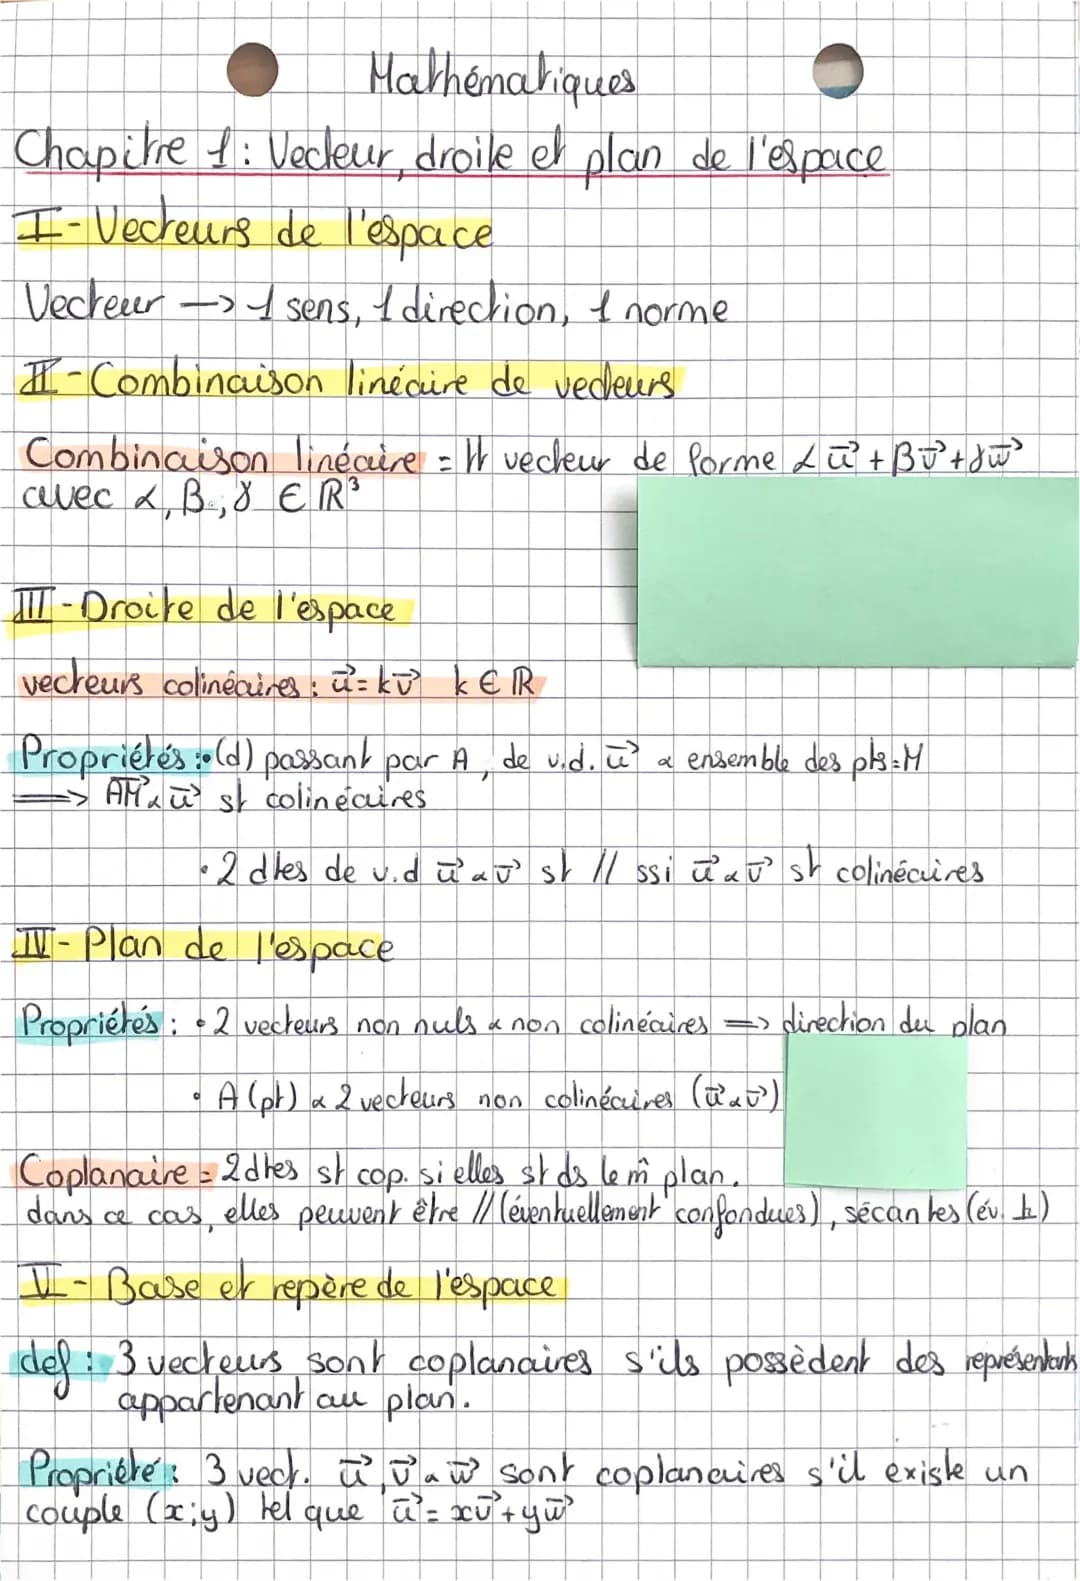 Mathématiques
Chapitre 1 : Vecteur, droite et plan de l'espace
I - Vecteurs de l'espace
Vecteur —> 1 sens, 1 direction, 1 norme
II - Combinaison linéaire de vecteurs
Combinaison linéaire = tt vecteur de forme α u⃗ + β v⃗ + γ w⃗
avec α, β, γ ∈ ℝ³
III - Droite de l'espace
vecteurs colinéaires : u⃗ = k v⃗ k ∈ ℝ
Propriétés : • (d) passant par A, de v.d. u⃗ & ensemble des pts M
==> AM⃗ & u⃗ st colinéaires
• 2 dtes de v.d u⃗ & v⃗ st // ssi u⃗ & v⃗ st colinéaires
IV - Plan de l'espace
Propriétés : • 2 vecteurs non nuls & non colinéaires => direction du plan
• A (pt) & 2 vecteurs non colinéaires (u⃗ & v⃗)
Coplanaire = 2 dtes st cop. si elles st ds le m̂ plan.
dans ce cas, elles peuvent être // (éventuellement confondues), sécantes (év. ⊥)
V - Base et repère de l'espace
def : 3 vecteurs sont coplanaires s'ils possèdent des représentants
appartenant au plan.
Propriété : 3 vect. u⃗, v⃗ & w⃗ sont coplanaires s'il existe un
couple (x;y) tel que u⃗ = x v⃗ + y w⃗